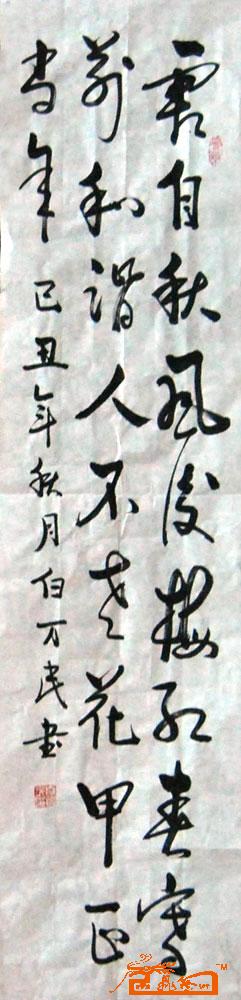 霜自秋风後梅红春
前和谐人不老花甲正
当年 己丑年秋月白万民书